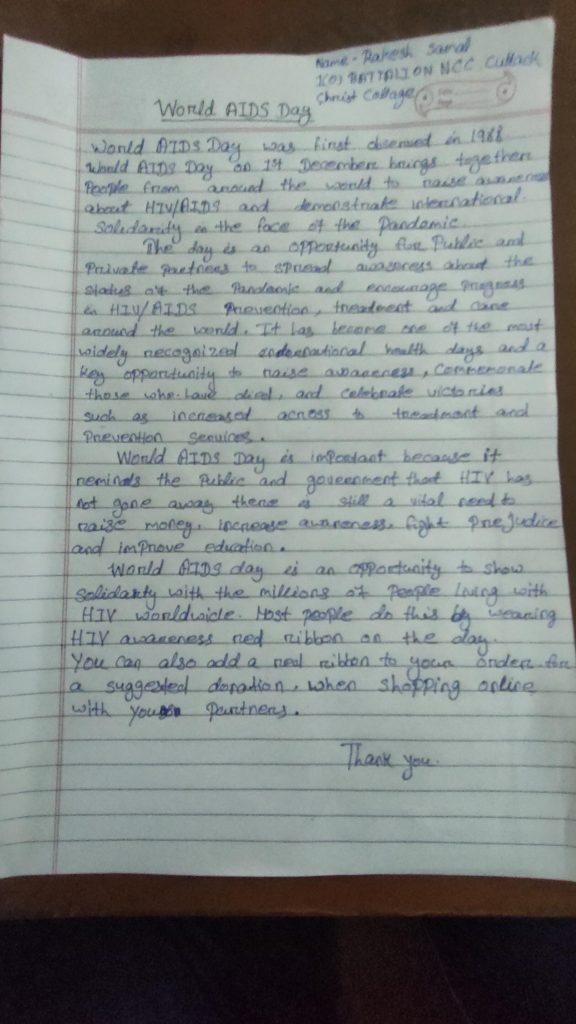 Name - Rakesh Samal
1(O) BATTALION NCC Cuttack
Christ Collage
World AIDS Day
World AIDS Day was first observed in 1988
World AIDS Day on 1st December brings together
People from around the world to raise awareness
about HIV/AIDS and demonstrate international
Solidarity in the face of the Pandamic.
The day is an opportunity for Public and
Private partners to spread awareness about the
status of the Pandamic and encourage Progress
in HIV/AIDS Prevention, treatment and care
around the world. It has become one of the most
widely recognized international health days and a
key opportunity to raise awareness, Commemorate
those who have died, and celebrate victories
such as increased across to treatment and
Prevention services.
World AIDS Day is important because it
reminds the Public and government that HIV has
not gone away there is still a vital need to
raise money, increase awareness, fight Prejudice
and improve eduation.
World AIDS day is an opportunity to show
Solidarity with the millions of People living with
HIV worldwide. Most people do this by wearing
HIV awareness red ribbon on the day.
You can also add a red ribbon to your order for
a suggested donation, when shopping online
with partners.
Thank you.